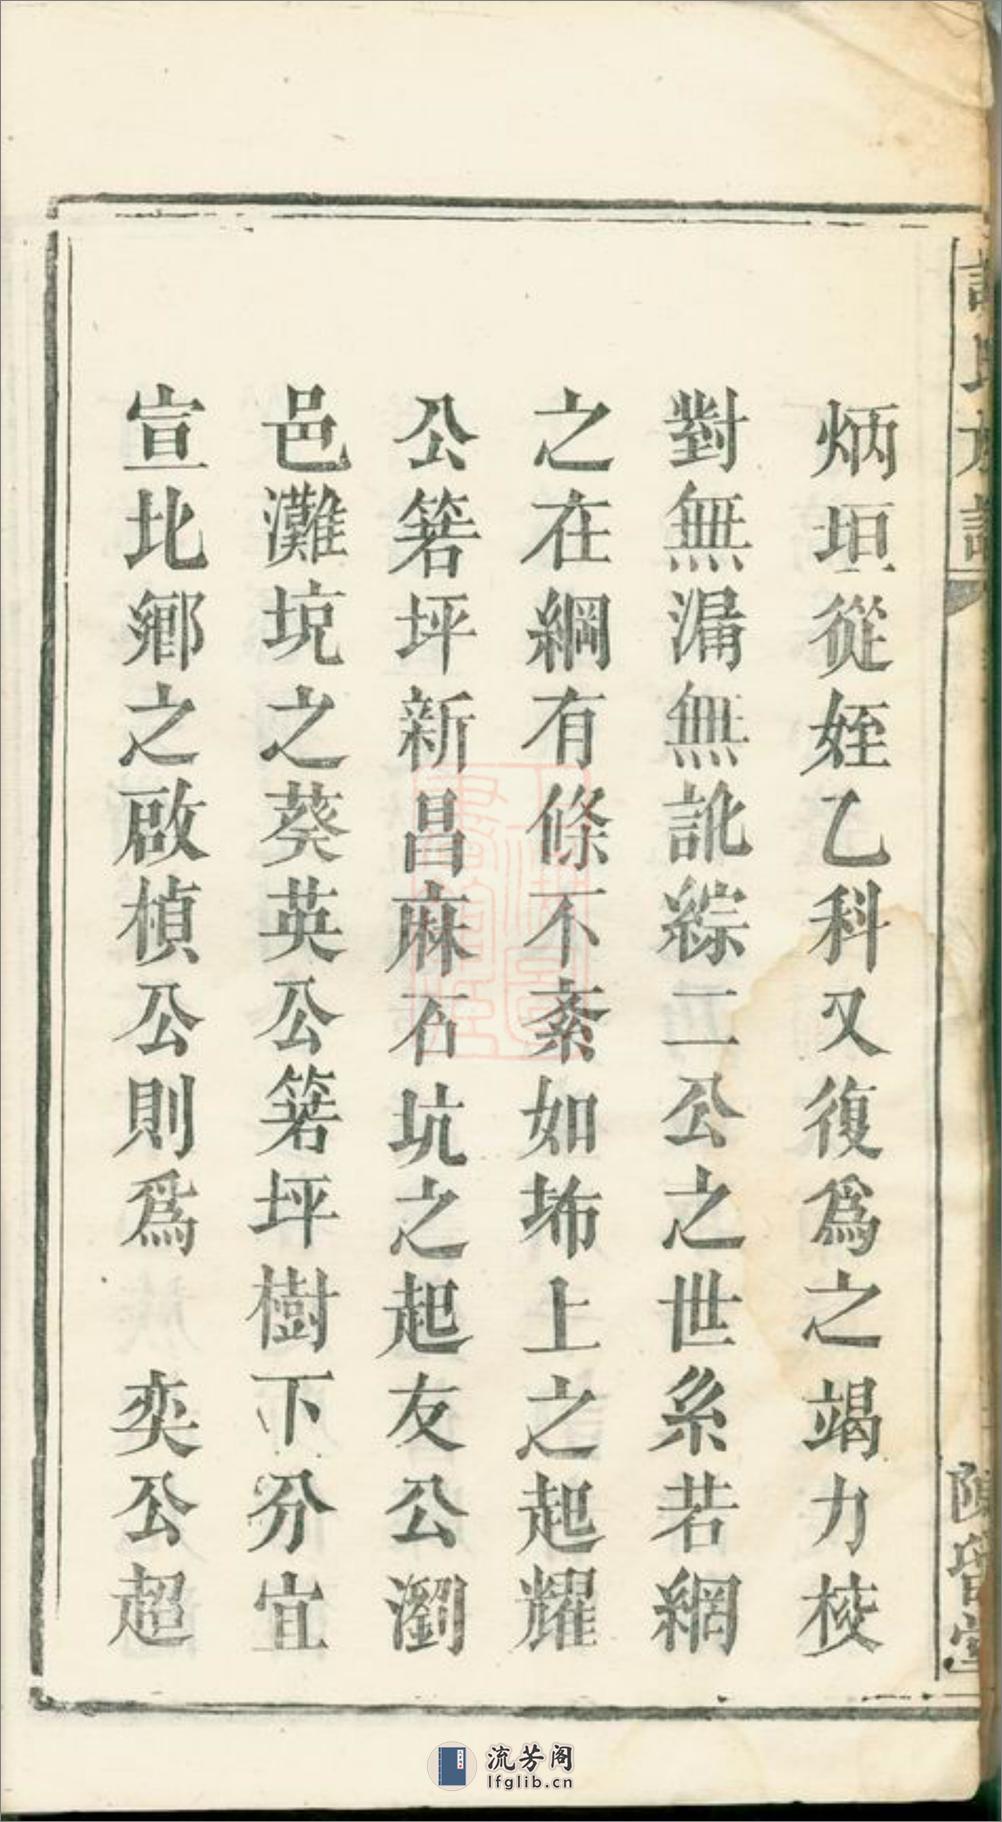 炳垣從姪乙科又復爲之竭力校
對無漏無訛綜二公之世系若網
之在綱有條不紊如坊上之起耀
公箬坪新昌麻石坑之起友公瀏
邑灘坑之葵英公箬坪樹下分宜
宣北鄉之啟楨公則爲 奕公超
流芳阁
lfglib.cn